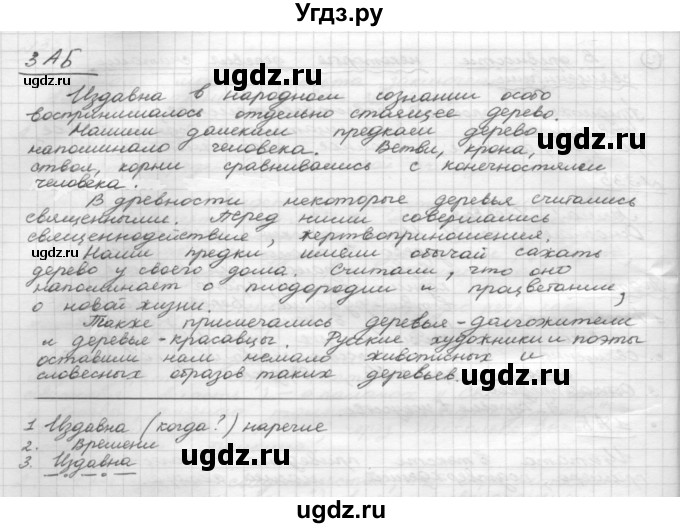 Угдз.ру
3 АБ
Издавна в народном сознании особо
воспринималось отдельно стаящее дерево.
Нашим далеким предкам дерево
напоминало человека. Ветви, крона,
ствол, корни сравнивались с конечностями
человека.
В древности некоторые деревья считались
священными. Перед ними совершались
священнодействие, жертвоприношения.
Наши предки имели обычай сажать
дерево у своего дома. Считали, что оно
напоминает о плодородии и процветании,
о новой жизни.
Также примечались деревья-должители
и деревья-красавцы. Русские художники и поэты
оставили нам немало живописных и
словесных образов таких деревьев.
1 Издавна (когда?) наречие
2. Времени
3. Издавна
ugdz.ru
ugdz.ru
ugdz.ru
ugdz.ru
ugdz.ru
ugdz.ru
ugdz.ru
ugdz.ru
ugdz.ru
ugdz.ru
ugdz.ru